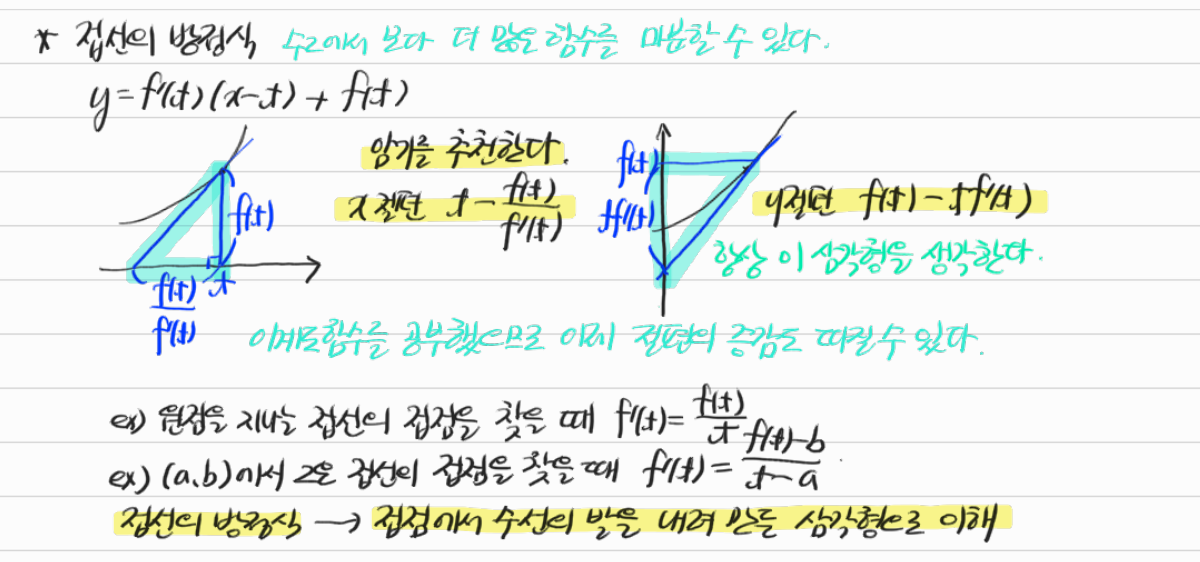 * 접선의 방정식 수2에서 보다 더 많은 함수를 미분할 수 있다.
y = f'(t)(x-t) + f(t)
암기를 추천한다.
x절편 t - f(t)/f'(t)
f(t)
t
f(t)/f'(t)
f(t)
tf'(t)
y절편 f(t) - tf'(t)
항상 이 삼각형을 생각한다.
이계도함수를 공부했으므로 이제 절편의 증감도 따질 수 있다.
ex) 원점을 지나는 접선의 접점을 찾을 때 f'(t) = f(t)/t
ex) (a,b)에서 그은 접선의 접점을 찾을 때 f'(t) = f(t)-b/t-a
접선의 방정식 → 접점에서 수선의 발을 내려 만든 삼각형으로 이해